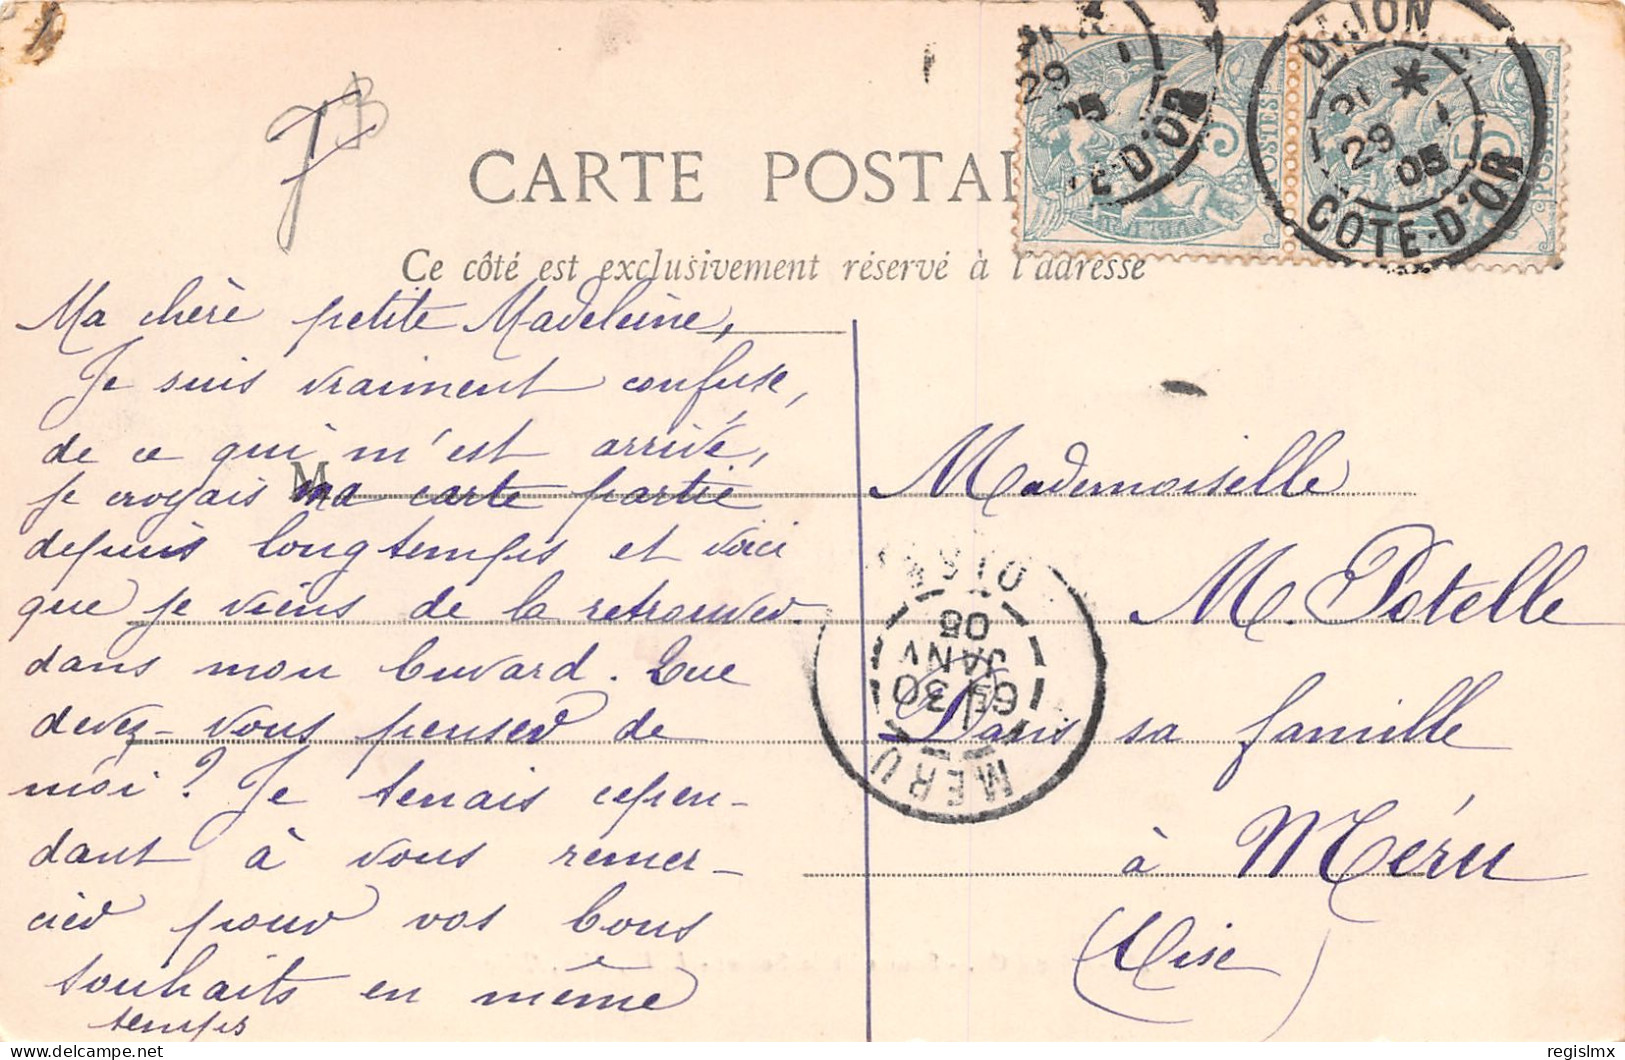 CARTE POSTAL
Ce côté est exclusivement réservé à l'adresse
DIJON
29 1
05
COTE-D'OR
29 1
05
E-D'OR
5
POSTES
5
POSTE
Ma chère petite Madeleine,
Je suis vraiment confuse,
de ce qui m'est arrivé,
je croyais ma carte partie
depuis longtemps et voici
que je viens de la retrouver
dans mon buvard. Que
devez-vous penser de
moi ? Je tenais cepen-
dant à vous remer-
cier pour vos bons
souhaits en même
temps
M
Mademoiselle
M. Potelle
Dans sa famille
à Méru
(Oise)
MERU
6E 30
JANV
05
OISE
regislmx